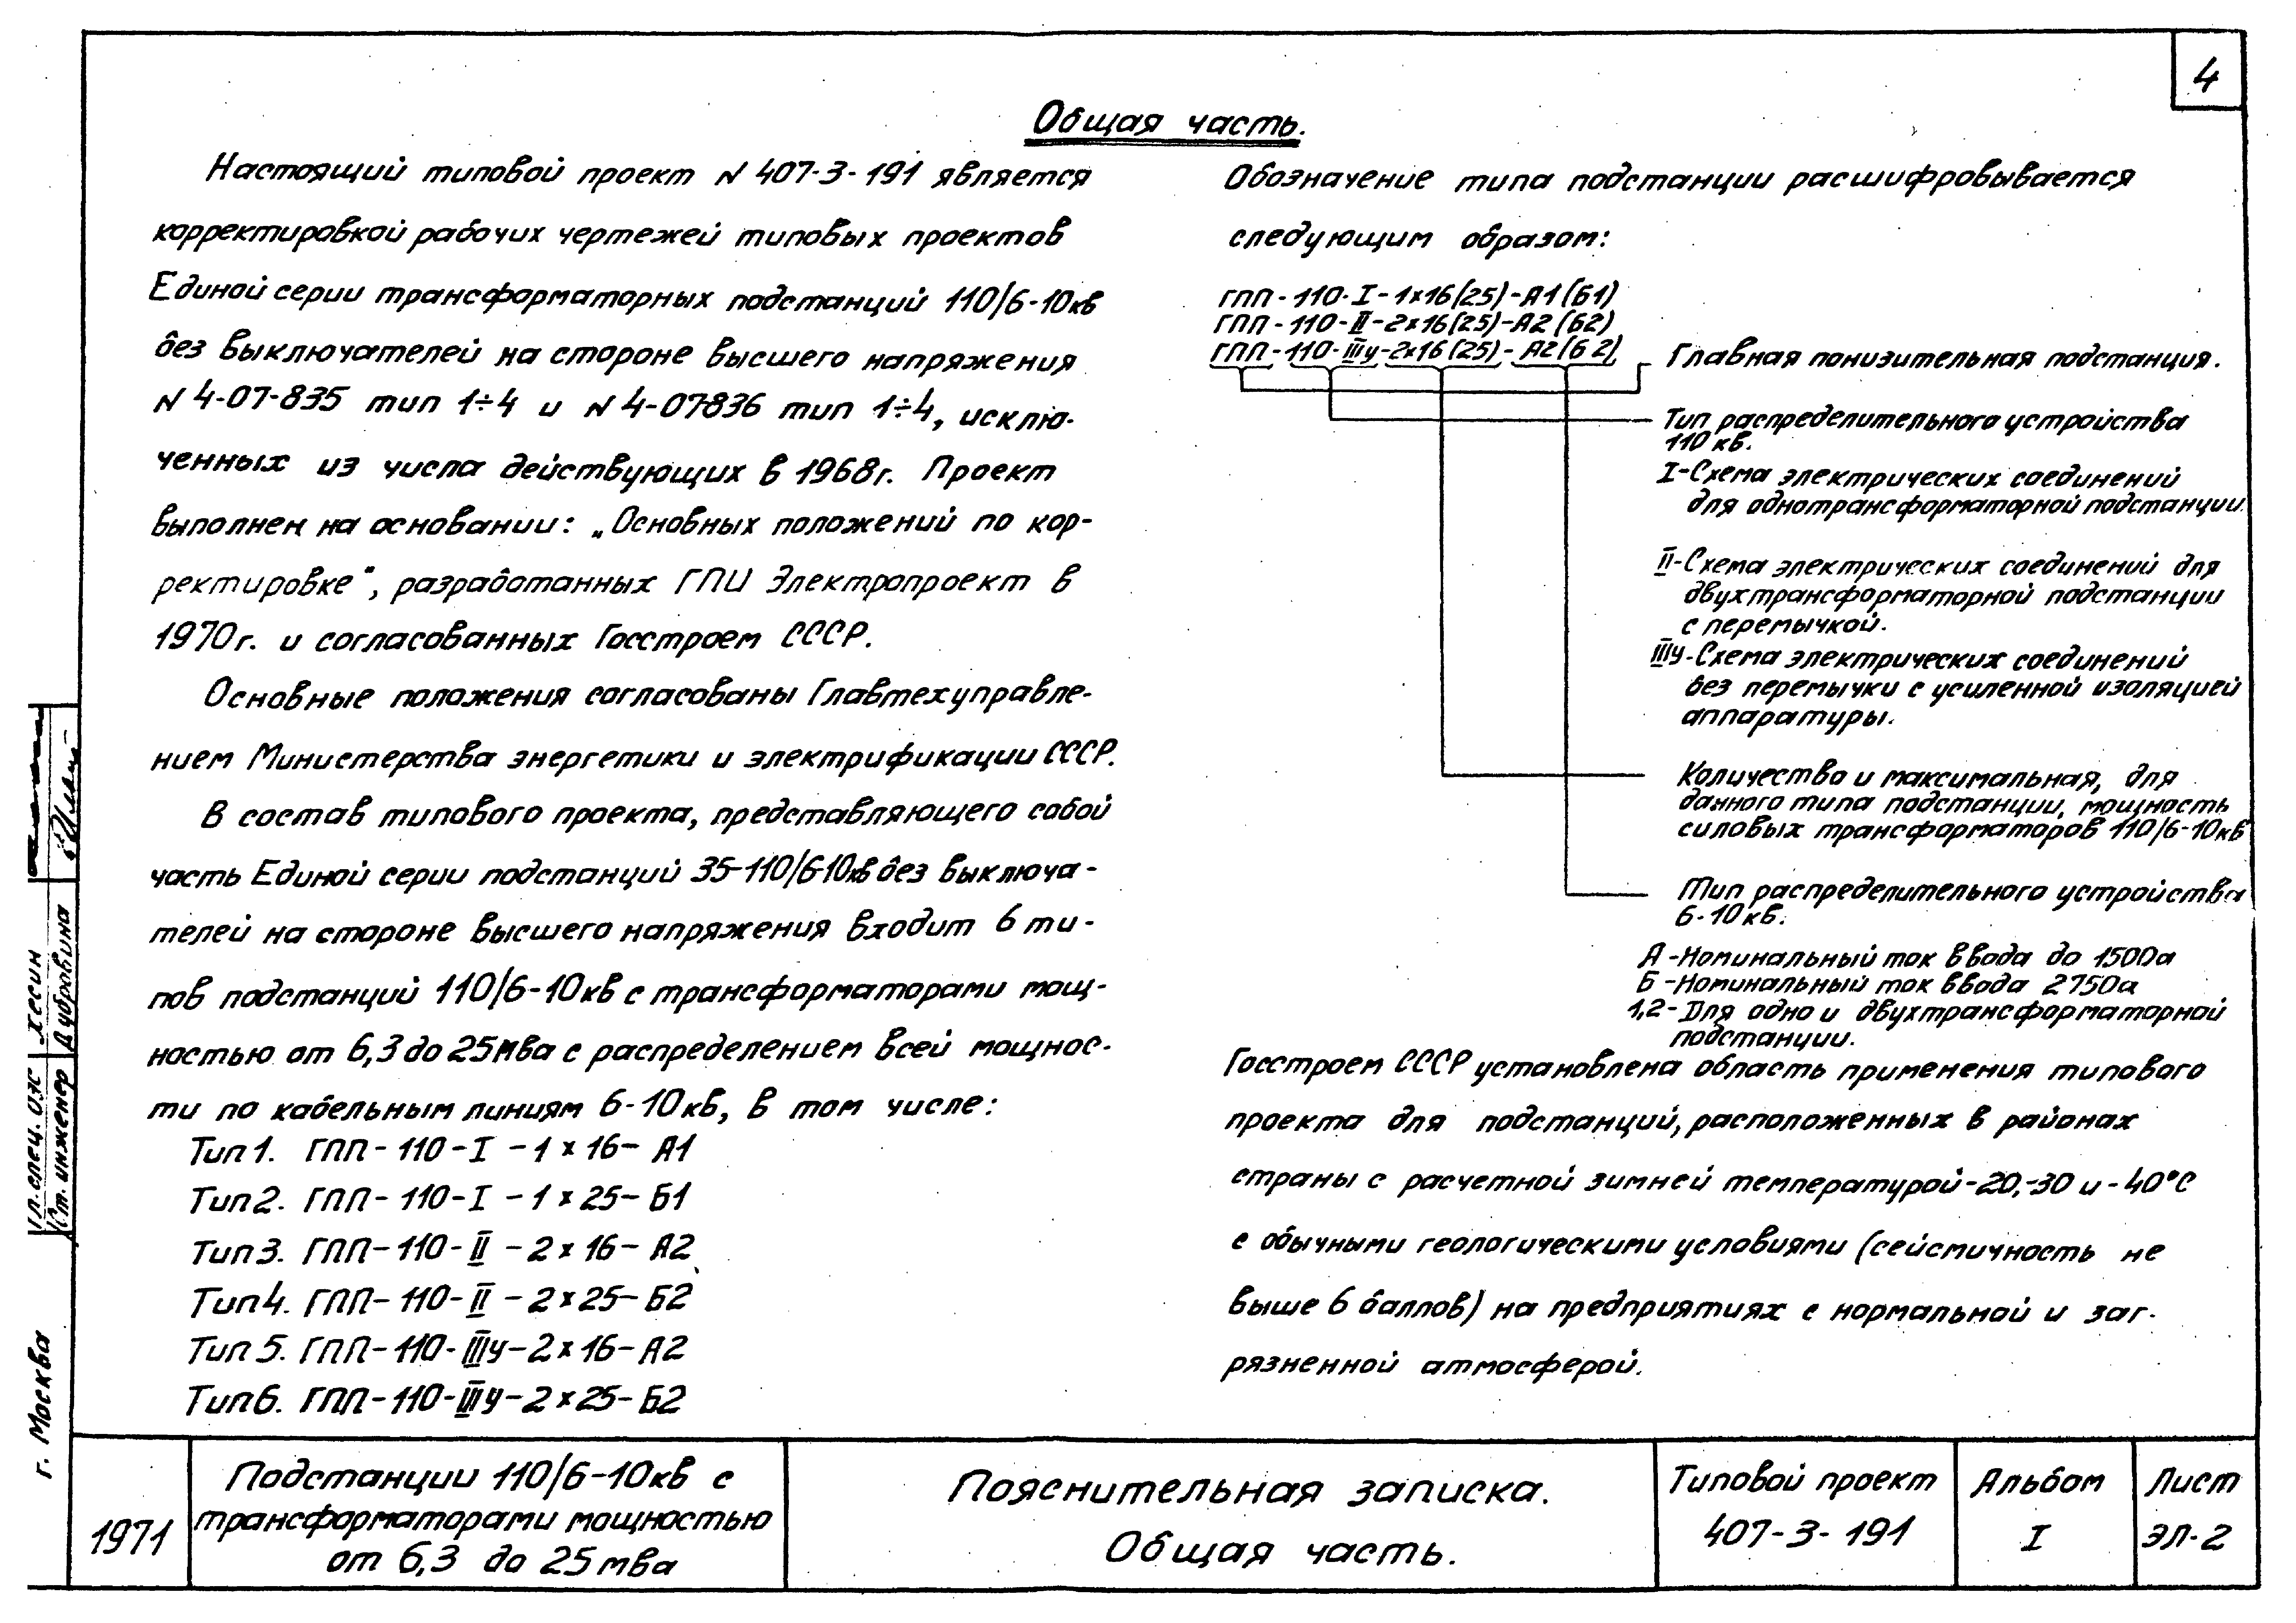 4
Общая часть.
Настоящий типовой проект N 407-3-191 является
корректировкой рабочих чертежей типовых проектов
Единой серии трансформаторных подстанций 110/6-10кв
без выключателей на стороне высшего напряжения
N 4-07-835 тип 1÷4 и N 4-07836 тип 1÷4, исклю-
ченных из числа действующих в 1968г. Проект
выполнен на основании: „Основных положений по кор-
ректировке", разработанных ГПИ Электропроект в
1970г. и согласованных Госстроем СССР.
Основные положения согласованы Главтехуправле-
нием Министерства энергетики и электрификации СССР.
В состав типового проекта, представляющего собой
часть Единой серии подстанций 35-110/6-10кв без выключа-
телей на стороне высшего напряжения входит 6 ти-
пов подстанций 110/6-10кв с трансформаторами мощ-
ностью от 6,3 до 25мва с распределением всей мощнос-
ти по кабельным линиям 6-10кв, в том числе:
Тип 1. ГПП-110-I-1×16-А1
Тип 2. ГПП-110-I-1×25-Б1
Тип 3. ГПП-110-II-2×16-А2
Тип 4. ГПП-110-II-2×25-Б2
Тип 5. ГПП-110-IIIу-2×16-А2
Тип 6. ГПП-110-IIIу-2×25-Б2
Обозначение типа подстанции расшифровывается
следующим образом:
ГПП-110-I-1×16(25)-А1(Б1)
ГПП-110-II-2×16(25)-А2(Б2)
ГПП-110-IIIу-2×16(25)-А2(б2)
Главная понизительная подстанция.
Тип распределительного устройства
110 кв.
I-Схема электрических соединений
для однотрансформаторной подстанции.
II-Схема электрических соединений для
двухтрансформаторной подстанции
с перемычкой.
IIIу-Схема электрических соединений
без перемычки с усиленной изоляцией
аппаратуры.
Количество и максимальная, для
данного типа подстанции, мощность
силовых трансформаторов 110/6-10кв
Тип распределительного устройства
6-10кв.
А-Номинальный ток ввода до 1500а
Б-Номинальный ток ввода 2750а
1,2-Для одно и двухтрансформаторной
подстанции.
Госстроем СССР установлена область применения типового
проекта для подстанций, расположенных в районах
страны с расчетной зимней температурой -20,-30 и -40°С
с обычными геологическими условиями (сейсмичность не
выше 6 баллов) на предприятиях с нормальной и заг-
рязненной атмосферой.
Гл. спец. ОЭС Хесин
Ст. инженер Дубровина
г. Москва
1971
Подстанции 110/6-10кв с
трансформаторами мощностью
от 6,3 до 25мва
Пояснительная записка.
Общая часть.
Типовой проект
407-3-191
Альбом
I
Лист
ЭЛ-2